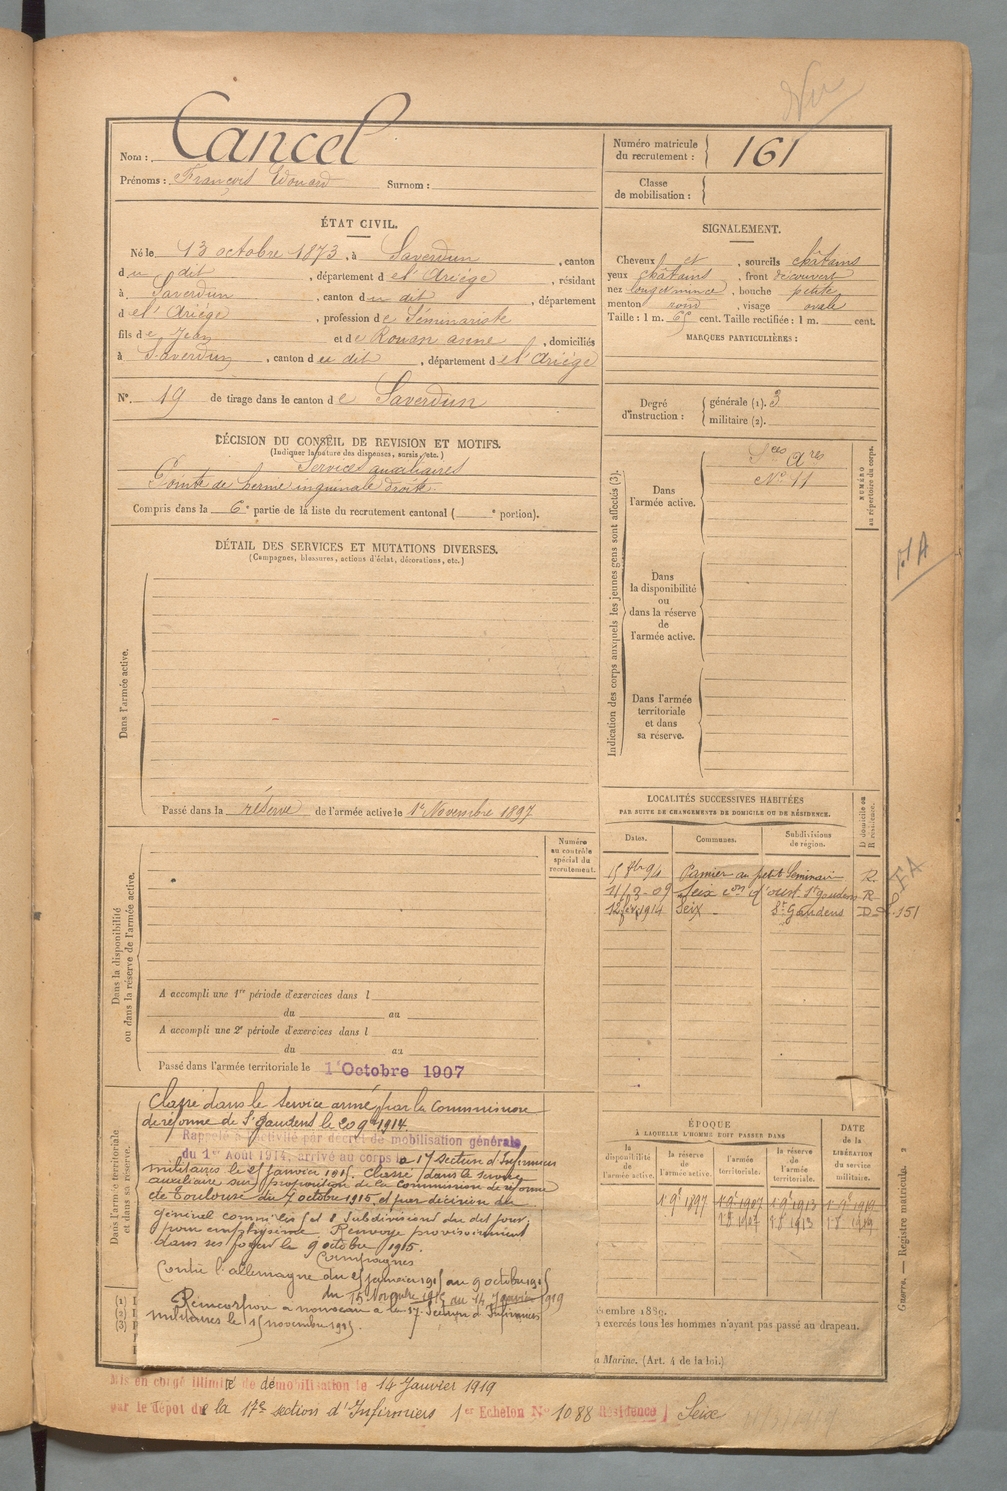 Nom : Cancel
Prénoms : François Edouard Surnom :
Numéro matricule du recrutement : 161
Classe de mobilisation :
ÉTAT CIVIL.
Né le 13 octobre 1873, à Saverdun, canton
du dit, département de l'Ariége, résidant
à Saverdun, canton du dit, département
de l'Ariége, profession de Séminariste
fils de Jean et de Rouan anne, domiciliés
à Saverdun, canton du dit, département de l'Ariége
N° 19 de tirage dans le canton de Saverdun
SIGNALEMENT.
Cheveux et, sourcils châtains
yeux châtains, front découvert
nez long et mince, bouche petite
menton rond, visage ovale
Taille : 1 m. 65 cent. Taille rectifiée : 1 m. cent.
MARQUES PARTICULIÈRES :
Degré d'instruction : générale (1). 3
militaire (2).
DÉCISION DU CONSEIL DE REVISION ET MOTIFS.
(Indiquer la nature des dispenses, sursis, etc.)
Services auxiliaires
Pointe de hernie inguinale droite
Compris dans la 6e partie de la liste du recrutement cantonal ( e portion).
DÉTAIL DES SERVICES ET MUTATIONS DIVERSES.
(Campagnes, blessures, actions d'éclat, décorations, etc.)
Dans l'armée active.
Passé dans la réserve de l'armée active le 1er Novembre 1897
Indication des corps auxquels les jeunes gens sont affectés (3).
NUMÉRO au répertoire du corps.
Dans l'armée active.
Sces Ares
N° 11
Dans la disponibilité ou dans la réserve de l'armée active.
Dans l'armée territoriale et dans sa réserve.
LOCALITÉS SUCCESSIVES HABITÉES
PAR SUITE DE CHANGEMENTS DE DOMICILE OU DE RÉSIDENCE.
D domicile ou R résidence.
Dates. Communes. Subdivisions de région.
94 Pamier au petit Séminaire R.
11/3-09 Seix con d'oust St gaudens R
1914 Seix St Gaudens D 151
Numéro au contrôle spécial du recrutement.
Dans la disponibilité ou dans la réserve de l'armée active.
A accompli une 1re période d'exercices dans l
du au
A accompli une 2e période d'exercices dans l
du au
Passé dans l'armée territoriale le 1er Octobre 1907
Dans l'armée territoriale et dans sa réserve.
Classé dans le service armé par la Commission
de réforme de St gaudens le 20 9bre 1914.
Rappelé à l'activité par décret de mobilisation générale
du 1er Aout 1914, arrivé au corps à 17 section d'Infirmiers
militaires le 25 janvier 1915. Classé dans le service
auxiliaire sur proposition de la Commission de réforme
de Toulouse du 7 octobre 1915, et par décision du
pour emphysème. Renvoyé provisoirement
dans ses foyers le 9 octobre 1915.
Campagnes
Contre l'allemagne du 25 janvier 1915 au 9 octobre 1915
du 15 Novembre 1915 au 14 Janvier 1919
Réincorporé a nouveau a la 17e Section d'Infirmiers
militaires le 15 novembre 1915.
ÉPOQUE
À LAQUELLE L'HOMME DOIT PASSER DANS
la disponibilité de l'armée active. la réserve de l'armée active. l'armée territoriale. la réserve de l'armée territoriale.
DATE de la LIBÉRATION du service militaire.
1er 9bre 1897 1er 9bre 1907 1er 9bre 1913 1er 9bre 1919
1907 1913 1919
(1) (2) (3)
écembre 1889.
exercés tous les hommes n'ayant pas passé au drapeau.
a Marine. (Art. 4 de la loi.)
Guerre. — Registre matricule. 2
Mis en congé illimité de démobilisation le 14 Janvier 1919
par le dépôt de la 17e section d'Infirmiers 1er Echelon N° 1088 Résidence Seix